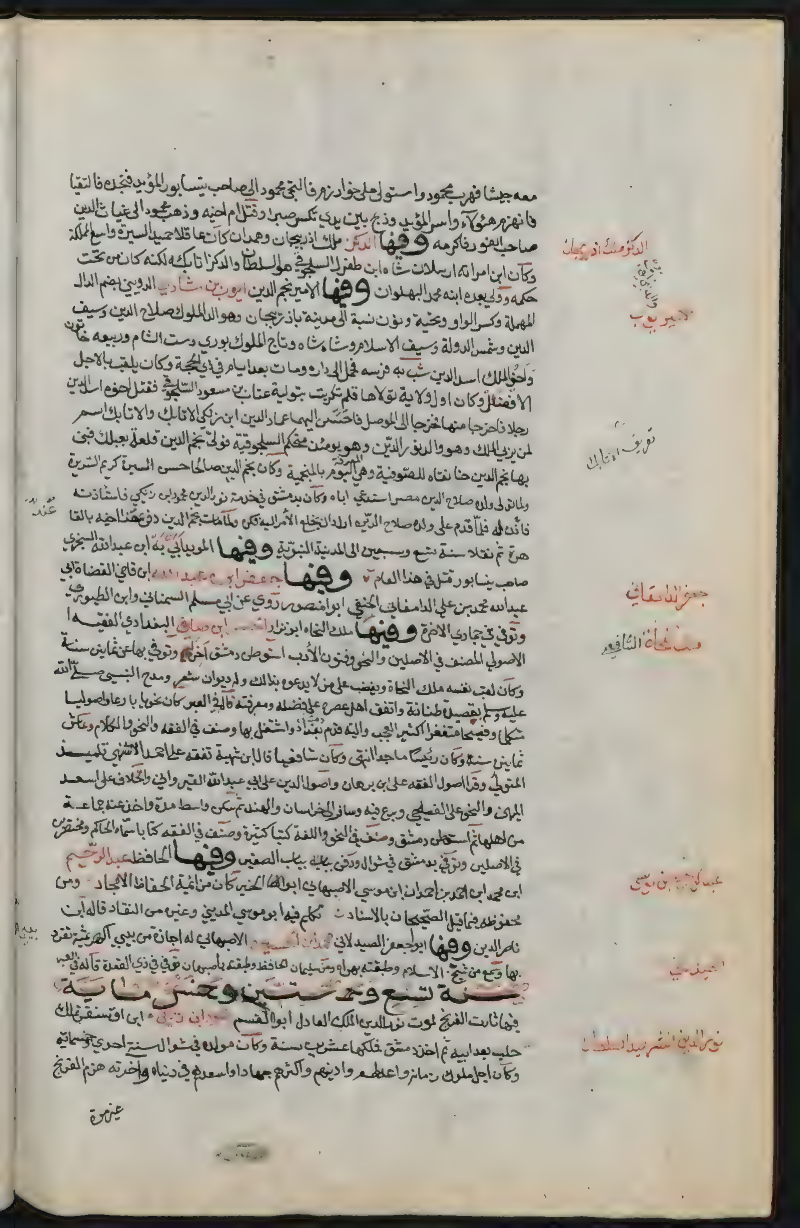 معه جيشا فهرب محمود واستولى على خوارزم فالتجى محمود الى صاحب نيسابور المؤيد فنجده فالتقيا
فانهزم هؤلاء واسر المؤيد وذبح بين يدي تكش صبرا وقتل ام اخيه وذهب محمود الى غياث الدين
صاحب الغور فاكرمه وفيها الدكز ملك اذربيجان وهمدان كان عاقلا حميد السيرة واسع المملكة
وكان ابن امراته ارسلان شاه ابن طغرل السلجوقي هو السلطان والدكز اتابكه لكنه كان من تحت
حكمه وولي بعده ابنه محمد البهلوان وفيها الامير نجم الدين ايوب بن شادي الدويني بضم الدال
المهملة وكسر الواو وتحتية ونون نسبة الى مدينة باذربيجان وهو الد الملوك صلاح الدين وسيف
الدين وشمس الدولة وسيف الاسلام وشاهنشاه وتاج الملوك بوري وست الشام وربيعه خاتون
واخو الملك اسد الدين شب به فرسه فحمل الى داره ومات بعد ايام في ذي الحجة وكان يلقب بالاجل
الافضل وكان اول ولاية تولاها قلعة تكريت بتولية عتاب بن مسعود السلجوقي فقتل اخوه اسد الدين
رجلا فاخرجا منها فخرجا الى الموصل فاحسن اليهما عماد الدين ابن زنكي الاتابك والاتابك اسم
لمن يربي الملك وهو والد نور الدين وهو يومئذ تحت حكم السلجوقية تولى نجم الدين قلعة بعلبك فبنى
بها نجم الدين خانقاه للصوفية وهي اليوم بالنجمية وكان نجم الدين صالحا حسن السيرة كريم السريرة
ولما تولى ولده صلاح الدين مصر استدعى اباه وكان بدمشق في خدمة نور الدين محمود ابن زنكي فاستاذنه
فاذن له فلما قدم على ولده صلاح الدين اراد ان يخلع الأمر اليه فكره ولما مات نجم الدين دفن عند اخيه بالقا
هرة ثم نقلا سنة تسع وسبعين الى المدينة النبوية وفيها المؤيد ابي به ابن عبد الله السنجري
صاحب نيسابور قتل في هذا العام وفيها جعفر ابن عبد الله ابن قاضي القضاة ابي
عبد الله محمد بن علي الدامغاني الحنفي ابو منصور روي عن ابي مسلم السمناني وابن الطيوري
وتوفي في جمادي الاخرة وفيها ملك النحاه ابو نزار الحسن ابن صافي البغدادي الفقيه
الاصولي المصنف في الاصلين والنحو وفنون الأدب استوطن دمشق اخرا وتوفي بها عن ثمانين سنة
وكان لقب نفسه ملك النحاة ويغضب على من لا يدعوه بذلك وله ديوان شعر ومدح النبي صلى الله
عليه وسلم بقصيدة طنانة واتفق اهل عصره على فضله ومعرفته قال في العبر كان نحويا بارعا واصوليا
متكلما وفصيحا متقعرا كثير العجب والتيه قدم بغداد واشتغل بها وصنف في الفقه والنحو والكلام وعاش
ثمانين سنة وكان رئيسا ماجدا انتهى وكان شافعيا قال ابن شهبة تفقه على احمد الاشنهي تلميذ
المتولي وقرا اصول الفقه على ابن برهان واصول الدين على ابي عبد الله القيرواني والخلاف على اسعد
الميهني والنحو على الفصيحي وبرع فيه وسافر الى خراسان والهند ثم سكن واسط مدة واخذ عنه جماعة
من اهلها ثم استوطن دمشق وصنف في النحو واللغة كتبا كثيرة وصنف في الفقه كتابا سماه الحاكم ومختصرين
في الاصلين وتوفي بدمشق في شوال ودفن بباب الصغير وفيها الحافظ عبد الرحيم
ابن محمد ابن احمد بن حمدان ابن موسي الاصبهاني ابو الخير كان من ائمة الحفاظ الامجاد ومن
محفوظه فيما قيل الصحيحان بالاسناد تكلم فيه ابو موسي المديني وغيره من النقاد قاله ابن
ناصر الدين وفيها ابو جعفر الصيدلاني محمد ابن الحسين الاصبهاني له اجازة من بيبي الهرثمية تفرد
بها وسمع من شيخ الاسلام وطبقته بهراة ومن سليمان الحافظ وطبقته باصبهان توفي في ذي القعدة قاله في العبر
سنة تسع وستين وخمس ماية
فيها ثارت الفرنج لموت نور الدين الملك العادل ابو القسم محمود ابن زنكي ابن اق سنقر تملك
حلب بعد ابيه ثم اخذ دمشق فملكها عشرين سنة وكان مولده في شوال سنة احدى عشر وخمسماية
وكان اجل ملوك زمانه واعدلهم وادينهم واكثرهم جهادا واسعدهم في دنياه واخرته هزم الفرنج
غير مرة
الدكز ملك اذربيجان
الامير ايوب
تعريف الاتابك
جعفر الدامغاني
ملك النحاة الشافعي
عبد الرحيم بن موسى
الصيدلاني
نور الدين